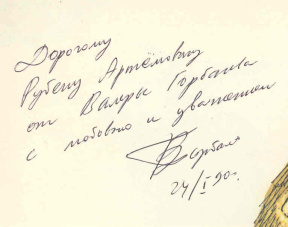 Дорогому
Рубену Артемовичу
от Валеры Горбачева
с любовью и уважением
24/I 90г.